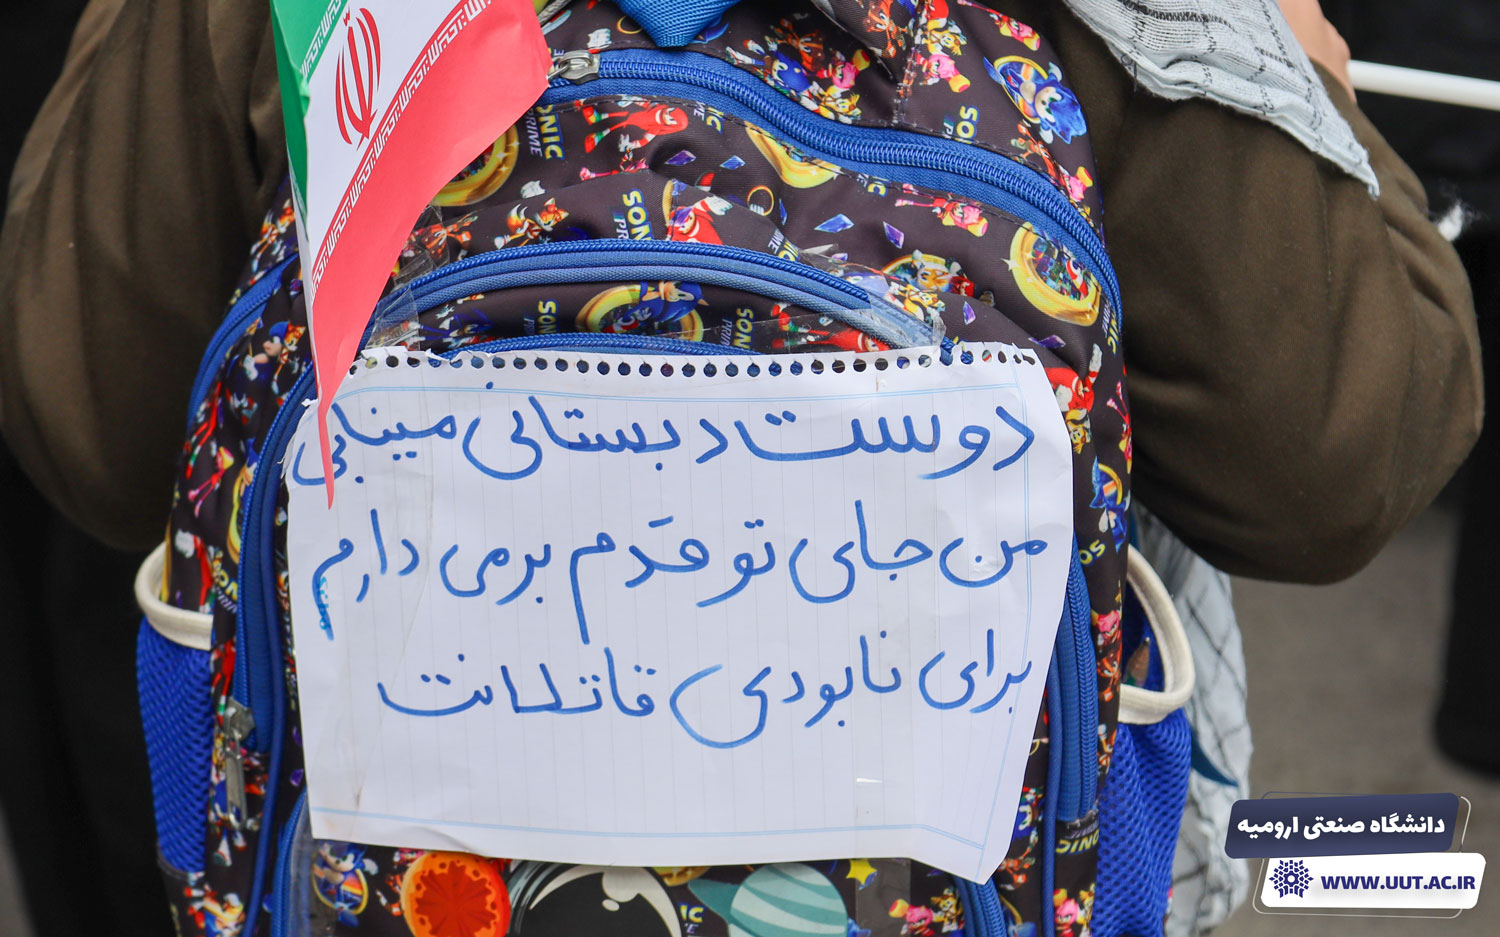 دوست دبستانی مینابی
من جای تو قدم برمی دارم
برای نابودی قاتلانت
SONIC
PRIME
SONIC
PRIME
SONIC
PRIME
دانشگاه صنعتی ارومیه
WWW.UUT.AC.IR